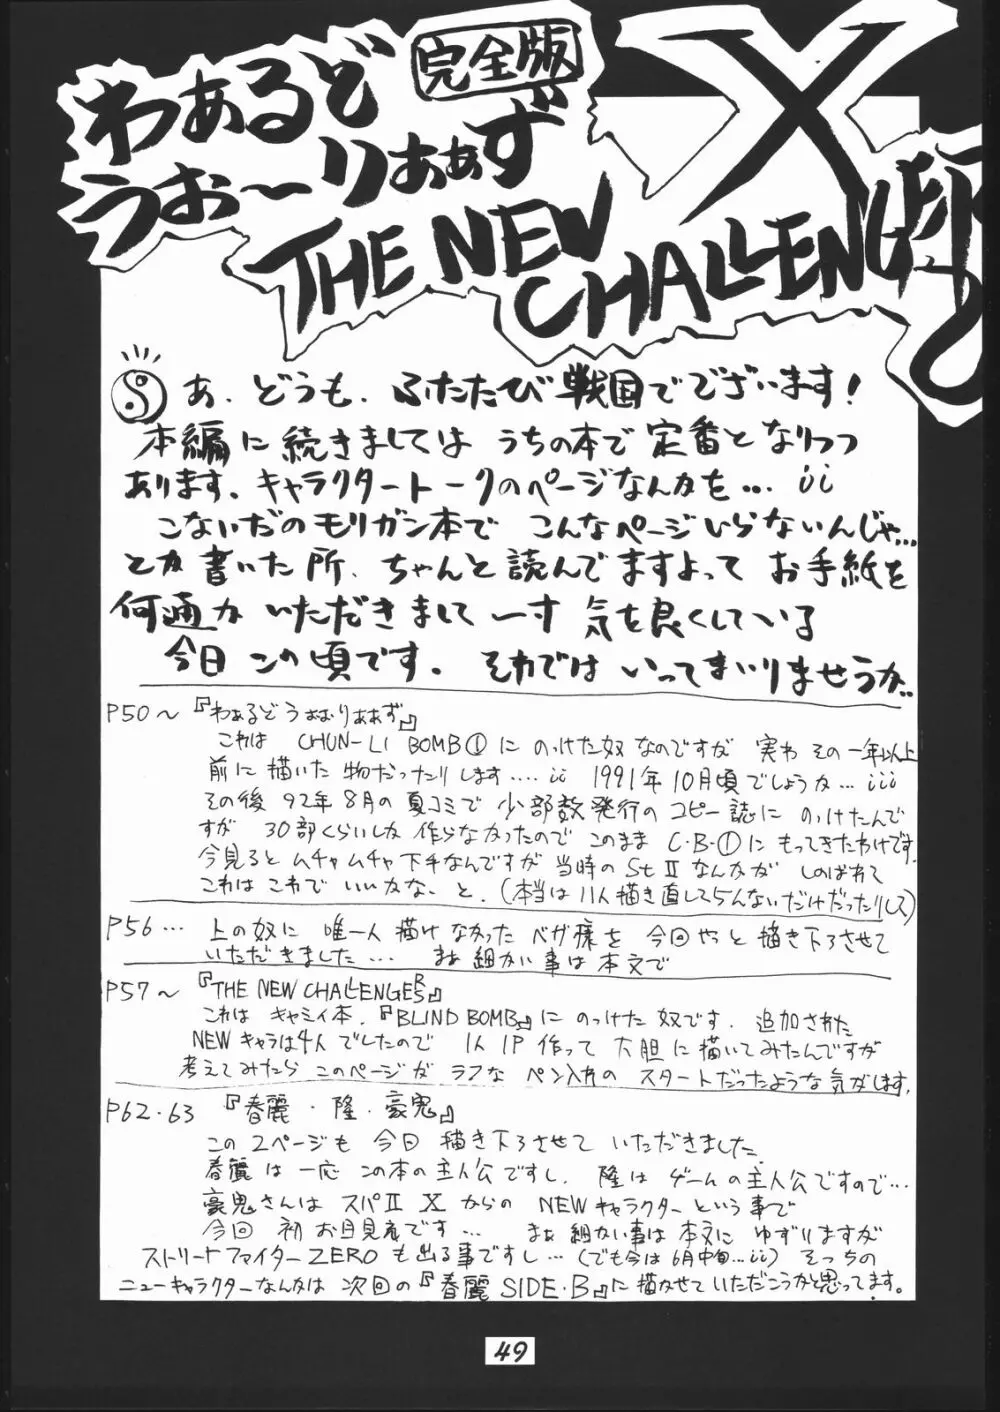 わぁるど
完全版
うお〜りあぁず
X
THE NEW
CHALLENGER
あ、どうも、ふたたび戦国でございます!
本編に続きましては うちの本で定番となりつつ
あります、キャラクタートークのページなんかを… ii
こないだのモリガン本で こんなページいらないんじゃ…
とか書いた所、ちゃんと読んでますよって お手紙を
何通か いただきまして 一寸 気を良くしている
今日この頃です。それでは いってまいりませうか..
P50〜『わぁるどうぉおりああず』
これは CHUN-LI BOMB①に のっけた奴なのですが 実わ その一年以上
前に描いた物だったりします‥‥ii 1991年10月頃でしょうか…iii
その後 92年8月の夏コミで 少部数発行の コピー誌に のっけたんで
すが 30部くらいしか 作らなかったので このまま C・B・①に もってきたわけです。
今見ると ムチャムチャ下手なんですが 当時の St Ⅱ なんかが しのばれて
これは これで いいかな、と。(本当は 11人描き直してらんないだけだったり(レス)
P56… 上の奴に 唯一人 描けなかった ベガ様を 今回やっと 描き下ろさせて
いただきました… まぁ細かい事は本文で
P57〜『THE NEW CHALLENGERS』
これは キャミィ本、『BLIND BOMB』に のっけた奴です。追加された
NEWキャラは4人でしたので 1人1P作って 大胆に描いてみたんですが
考えてみたら このページが ラフな ペン入れの スタートだったような気がします。
P62・63 『春麗・隆・豪鬼』
この2ページも 今回 描き下ろさせて いただきました。
春麗は一応 この本の主人公ですし、隆は ゲームの主人公ですので…
豪鬼さんは スパⅡ X からの NEWキャラクターという事で
今回 初お目見えです… まぁ細かい事は本文に ゆずりますが
ストリートファイターZEROも出る事ですし…(でも今は6月中旬…ii) そっちの
ニューキャラクターなんかは 次回の『春麗SIDE・B』に描かせていただこうかと思ってます。
49